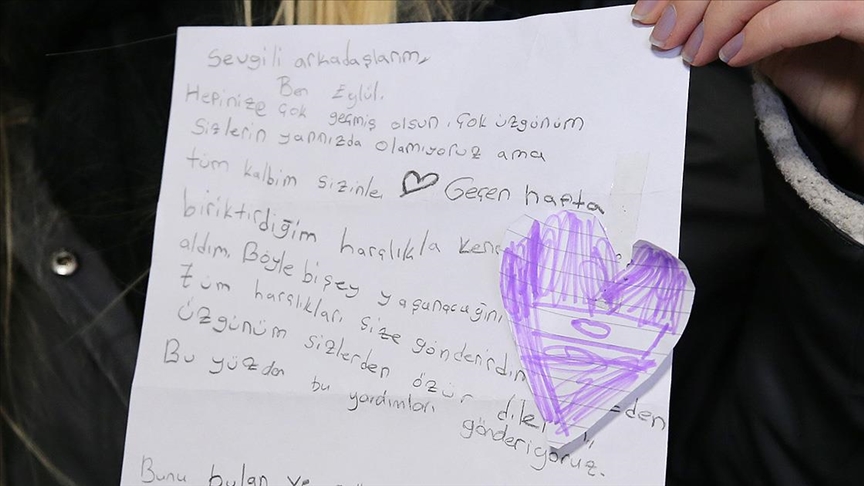 Sevgili arkadaşlarım,
Ben Eylül.
Hepinize çok geçmiş olsun. Çok üzgünüm
sizlerin yannızda olamıyoruz ama
tüm kalbim sizinle Geçen hafta
biriktirdiğim harçlıkla
aldım. Böyle bişey yaşanacağını
tüm harçlıkları size gönderirdim
üzgünüm sizlerden özür
Bu yüzden bu yardımları gönderiyoruz.
Bunu bulan ve